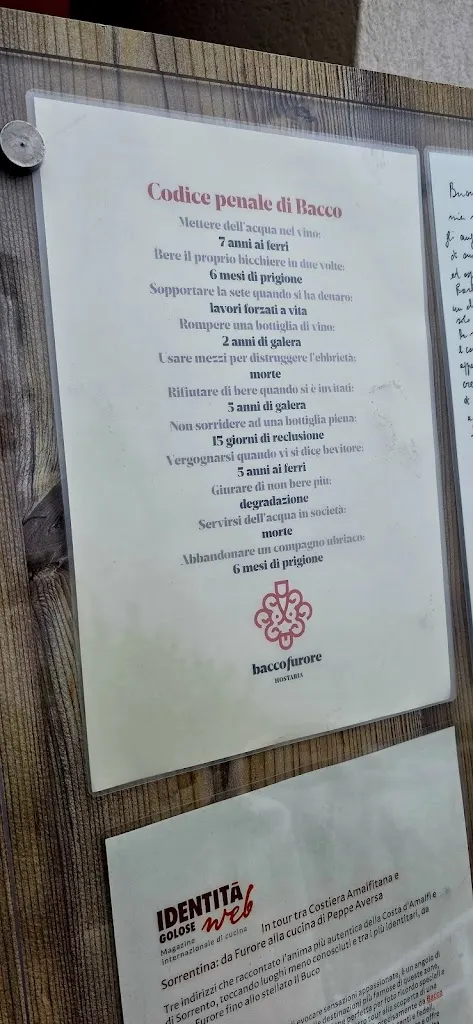 Codice penale di Bacco
Mettere dell'acqua nel vino:
7 anni ai ferri
Bere il proprio bicchiere in due volte:
6 mesi di prigione
Sopportare la sete quando si ha denaro:
lavori forzati a vita
Rompere una bottiglia di vino:
2 anni di galera
Usare mezzi per distruggere l'ebbrietà:
morte
Rifiutare di bere quando si è invitati:
5 anni di galera
Non sorridere ad una bottiglia piena:
15 giorni di reclusione
Vergognarsi quando vi si dice bevitore:
5 anni ai ferri
Giurare di non bere più:
degradazione
Servirsi dell'acqua in società:
morte
Abbandonare un compagno ubriaco:
6 mesi di prigione
baccofurore
HOSTARIA
IDENTITÀ
GOLOSE web
Magazine
internazionale di cucina
In tour tra Costiera Amalfitana e
Sorrentina: da Furore alla cucina di Peppe Aversa
Tre indirizzi che raccontato l'anima più autentica della Costa d'Amalfi e
di Sorrento, toccando luoghi meno conosciuti e tra i più identitari, da
Furore fino allo stellato Il Buco
evocare sensazioni appassionate, è un angolo di